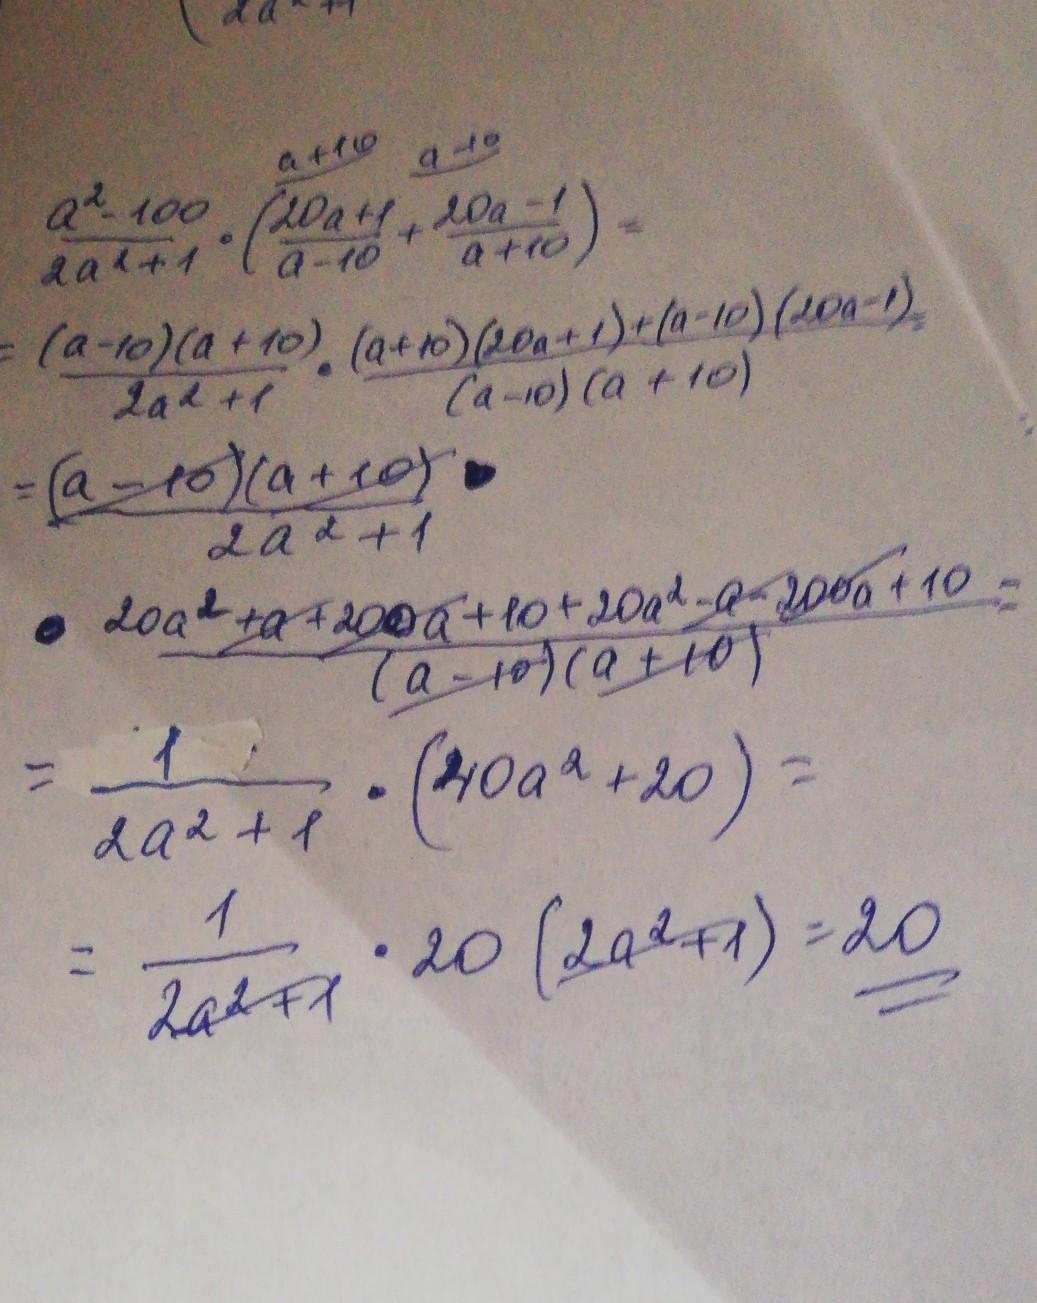 2a²+1
a+10 a-10
a²-100/2a²+1 · (20a+1/a-10 + 20a-1/a+10) =
= (a-10)(a+10)/2a²+1 · (a+10)(20a+1)+(a-10)(20a-1)/(a-10)(a+10) =
= (a-10)(a+10)/2a²+1 ·
· 20a²+a+200a+10+20a²-a-200a+10/(a-10)(a+10) =
= 1/2a²+1 · (40a²+20) =
= 1/2a²+1 · 20(2a²+1) = 20